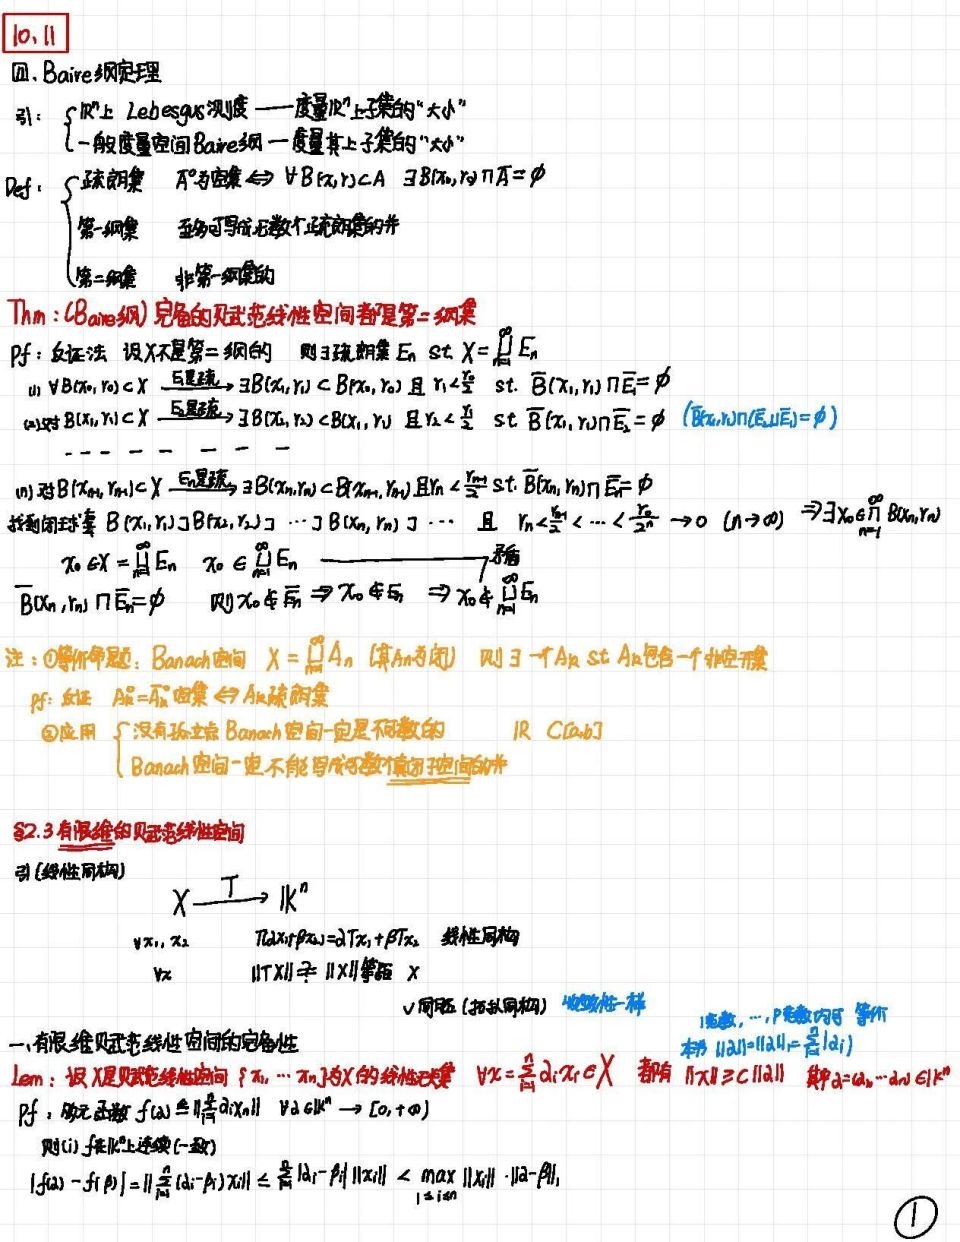 10.11
四、Baire纲定理
引: { ℝⁿ上 Lebesgus测度 —— 度量ℝⁿ上子集的“大小”
一般度量空间Baire纲 — 度量其上子集的“大小”
Def: { 疏朗集 A̅°为空集 ⇔ ∀B(x,r)⊂A ∃B(x₀,r₀)∩A̅=∅
第一纲集 至多可写成可数个疏朗集的并
第二纲集 非第一纲集的
Thm:(Baire纲) 完备的赋范线性空间都是第二纲集
pf: 反证法 设X不是第二纲的 则∃疏朗集 Eₙ st. X=⋃_{n=1}^{∞}Eₙ
(1) ∀B(x₀,r₀)⊂X —E₁是疏→ ∃B(x₁,r₁)⊂B(x₀,r₀) 且 r₁<r₀/2 st. B̅(x₁,r₁)∩E̅₁=∅
(2)对B(x₁,r₁)⊂X —E₂是疏→ ∃B(x₂,r₂)⊂B(x₁,r₁) 且 r₂<r₁/2 st B̅(x₂,r₂)∩E̅₂=∅ (B̅(x₂,r₂)∩(E̅₂∪E̅₁)=∅)
- - - - - - - -
(n)对B(xₙ₋₁,rₙ₋₁)⊂X —Eₙ是疏→ ∃B(xₙ,rₙ)⊂B(xₙ₋₁,rₙ₋₁)且rₙ<rₙ₋₁/2 st. B̅(xₙ,rₙ)∩E̅ₙ=∅
找到闭球套 B(x₁,r₁)⊃B(x₂,r₂)⊃ ⋯ ⊃B(xₙ,rₙ)⊃ ⋯ 且 rₙ<rₙ₋₁/2<⋯<r₀/2ⁿ →0 (n→∞) ⇒∃x₀∈⋂_{n=1}^{∞} B(xₙ,rₙ)
x₀∈X=⋃_{n=1}^{∞}Eₙ x₀∈⋃_{n=1}^{∞}Eₙ —— 矛盾
B̅(xₙ,rₙ)∩E̅ₙ=∅ 则x₀∉E̅ₙ ⇒ x₀∉Eₙ ⇒ x₀∉⋃_{n=1}^{∞}Eₙ
注: ①等价命题: Banach空间 X=⋃_{n=1}^{∞}Aₙ (其Aₙ为闭) 则∃一个Aₖ st Aₖ包含一个非空开集
pf: 反证 Aₖ°=A̅ₖ°空集⇔Aₖ疏朗集
②应用 { 没有孤立点Banach空间一定是不可数的 ℝ C[a,b]
Banach空间一定不能写成可数个真闭子空间的并
§2.3有限维的赋范线性空间
引(线性同构)
X —T→ 𝕂ⁿ
∀x₁,x₂ T(αx₁+βx₂)=αTx₁+βTx₂ 线性同构
∀x ||Tx|| ≟ ||x||等距 ×
✓同胚(拓扑同构) 收敛性一样
一、有限维赋范线性空间的完备性
1范数,⋯,P范数均可 等价
本书 ||α||=||α||₁=∑_{i=1}^{n}|αᵢ|
Lem: 设X是赋范线性空间 {x₁,⋯xₙ}为X的线性无关集 ∀x=∑_{i=1}^{n}αᵢxᵢ∈X 都有 ||x||≥C||α|| 其中α=(α₁,⋯αₙ)∈𝕂ⁿ
Pf: 多元函数 f(α)≜||∑_{i=1}^{n}αᵢxᵢ|| ∀α∈𝕂ⁿ → [0,+∞)
则(i) f在𝕂ⁿ上连续(一致)
|f(α)-f(β)|=||∑_{i=1}^{n}(αᵢ-βᵢ)xᵢ|| ≤ ∑_{i=1}^{n}|αᵢ-βᵢ| ||xᵢ|| < max_{1≤i≤n} ||xᵢ||·||α-β||₁
①